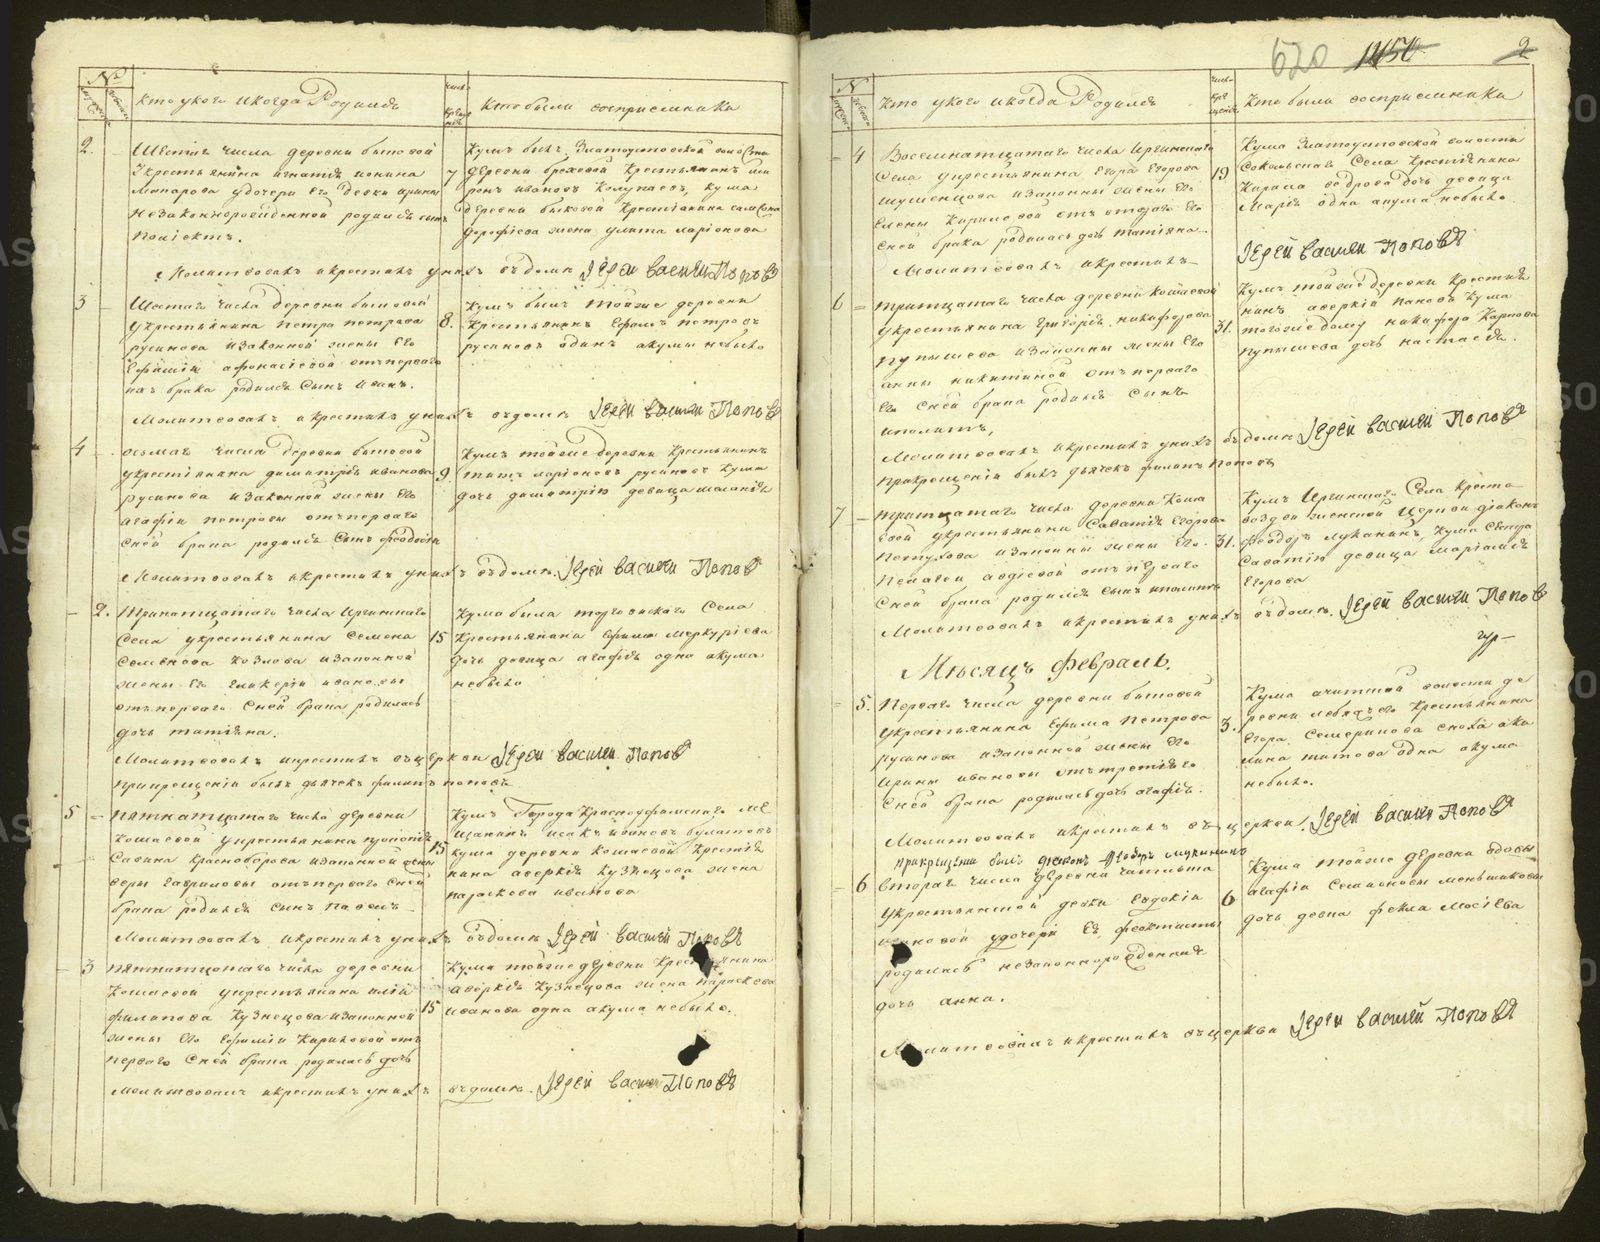 №
Кто у кого и когда Родился
Кто были восприемники
2.
Шестаго числа деревни бытовой
Крестьянина игнатия ионина
у дочери Его девки ирины
незаконнорожденной родился сынъ
полиектъ.
7
Кумъ былъ Златоустовской волости
деревни Крестьянинъ
иванов кума
деревни быковой Крестьянина
дорофиева жена улита ларионова
Молитвовалъ и крестилъ у нихъ въ доме Иерей василей Поповъ
3
Шестаго числа деревни бытовой
у крестьянина петра петрова
русинова и законной жены Его
Ефимии афонасиевой отъ перваго
брака родился Сынъ иванъ.
8.
Кумъ былъ тойже деревни
Крестьянинъ Ефимъ петровъ
русиновъ одинъ а кумы небыло
Молитвовалъ и крестилъ у нихъ въ доме Иерей василей Поповъ
4
осьмаго числа деревни бытовой
у крестьянина димитрия иванова
русинова и законной жены Его
агафии петровы отъ перваго
Сней брака родился Сынъ феодосий
9.
Кумъ тойже деревни Крестьянинъ
титъ ларионовъ русиновъ Кума
дочь димитрия девица маланья
Молитвовалъ и крестилъ у нихъ въ доме Иерей василей Поповъ
2.
Тринатцатаго числа Иргинскаго
Села у крестьянина Семена
Семенова Козлова и законной
жены Его гликерии ивановы
отъ перваго Сней брака родилась
дочь татияна.
15
Кума была тогоже Села
Крестьянина Ефима меркуриева
дочь девица агафия одна а кума
небыло
Молитвовалъ и крестилъ въ церкви Иерей василей Поповъ
При крещении былъ дьячекъ филипъ поповъ
5
пятнатцатаго числа деревни
Кошаевой у крестьянина
Савина Красноборова и законной жены
веры гавриловы отъ перваго Сней
брака родился сынъ павелъ
15
Кумъ Города Красноуфимскаго ме
щанинъ исакъ ивановъ булатовъ
кума деревни Кошаевой Крестья
нина аверкия Кузнецова жена
параскева иванова
Молитвовалъ и крестилъ у нихъ въ доме Иерей василей Поповъ
3
пятнатцатаго числа деревни
Кошаевой у крестьянина илии
филипова Кузнецова и законной
жены Его Ефимии Кариловой отъ
перваго Сней брака родилась дочь
15
Кума тойже деревни Крестьянина
аверкия Кузнецова жена параскева
иванова одна а кума небыло.
Молитвовалъ и крестилъ у нихъ въ доме. Иерей василей Поповъ
620 1450 2
№
Кто у кого и когда Родился
Кто были восприемники
4
Восемнатцатаго числа Иргинскаго
Села у крестьянина Егора Егорова
шушенцова и законны жены Его
Елены Кариловой отъ втораго Его
Сней брака родилась дочь татияна
19
Кума Златоустовской волости
Сокольскаго Села Крестьянина
Карила бодрова дочь девица
Мария одна а кума небыло
Молитвовалъ и крестилъ
Иерей василей Поповъ
6
тритцатаго числа деревни Кошаевой
у крестьянина Григория никифорова
пупышева и законны жены Его
анны никитиной отъ перваго
Его Сней брака родился сынъ
иполитъ,
31.
Кумъ тойже деревни Крестья
нинъ аверкий пановъ Кума
тогоже дому никифора Карпова
пупышева дочь настасья.
Молитвовалъ и крестилъ у нихъ въ доме Иерей василей Поповъ
При крещении былъ дьячекъ филипъ поповъ
7
тритцатаго числа деревни Коша
евой у крестьянина Саватия Егорова
петухова и законны жены Его
пелагеи авдиевой отъ перваго
Сней брака родился сынъ иполитъ
31.
Кумъ Иргинскаго Села Кресто
воздвиженской Церкви дияконъ
Феодоръ луканинъ, Кума Свекра
Саватию девица мариамия
Егорова
Молитвовалъ и крестилъ у нихъ въ доме. Иерей василей Поповъ
Месяцъ Февраль.
5.
Перваго числа деревни бытовой
у крестьянина Ефима Петрова
русинова и законной жены Его
ирины ивановы отъ третияго
Сней брака родилась дочь агафия.
3.
Кума ачитской волости де
ревни лебяжьей Крестьянина
Егора Семерикова сноха аку
лина титова одна а кума
небыло.
Молитвовалъ и крестилъ въ церкви. Иерей василей Поповъ
при крещении былъ дияконъ Феодоръ луканинъ
6
Втораго числа деревни чигвинты
у крестьянской девки Евдокии
ивановой у дочери Ея феоктисты
родилась незаконнорожденная
дочь анна.
6
Кума тойже деревни вдовы
агафии Семеновой меньшиковы
дочь девка фекла Мосиева
Молитвовалъ и крестилъ въ церкви Иерей василей Поповъ